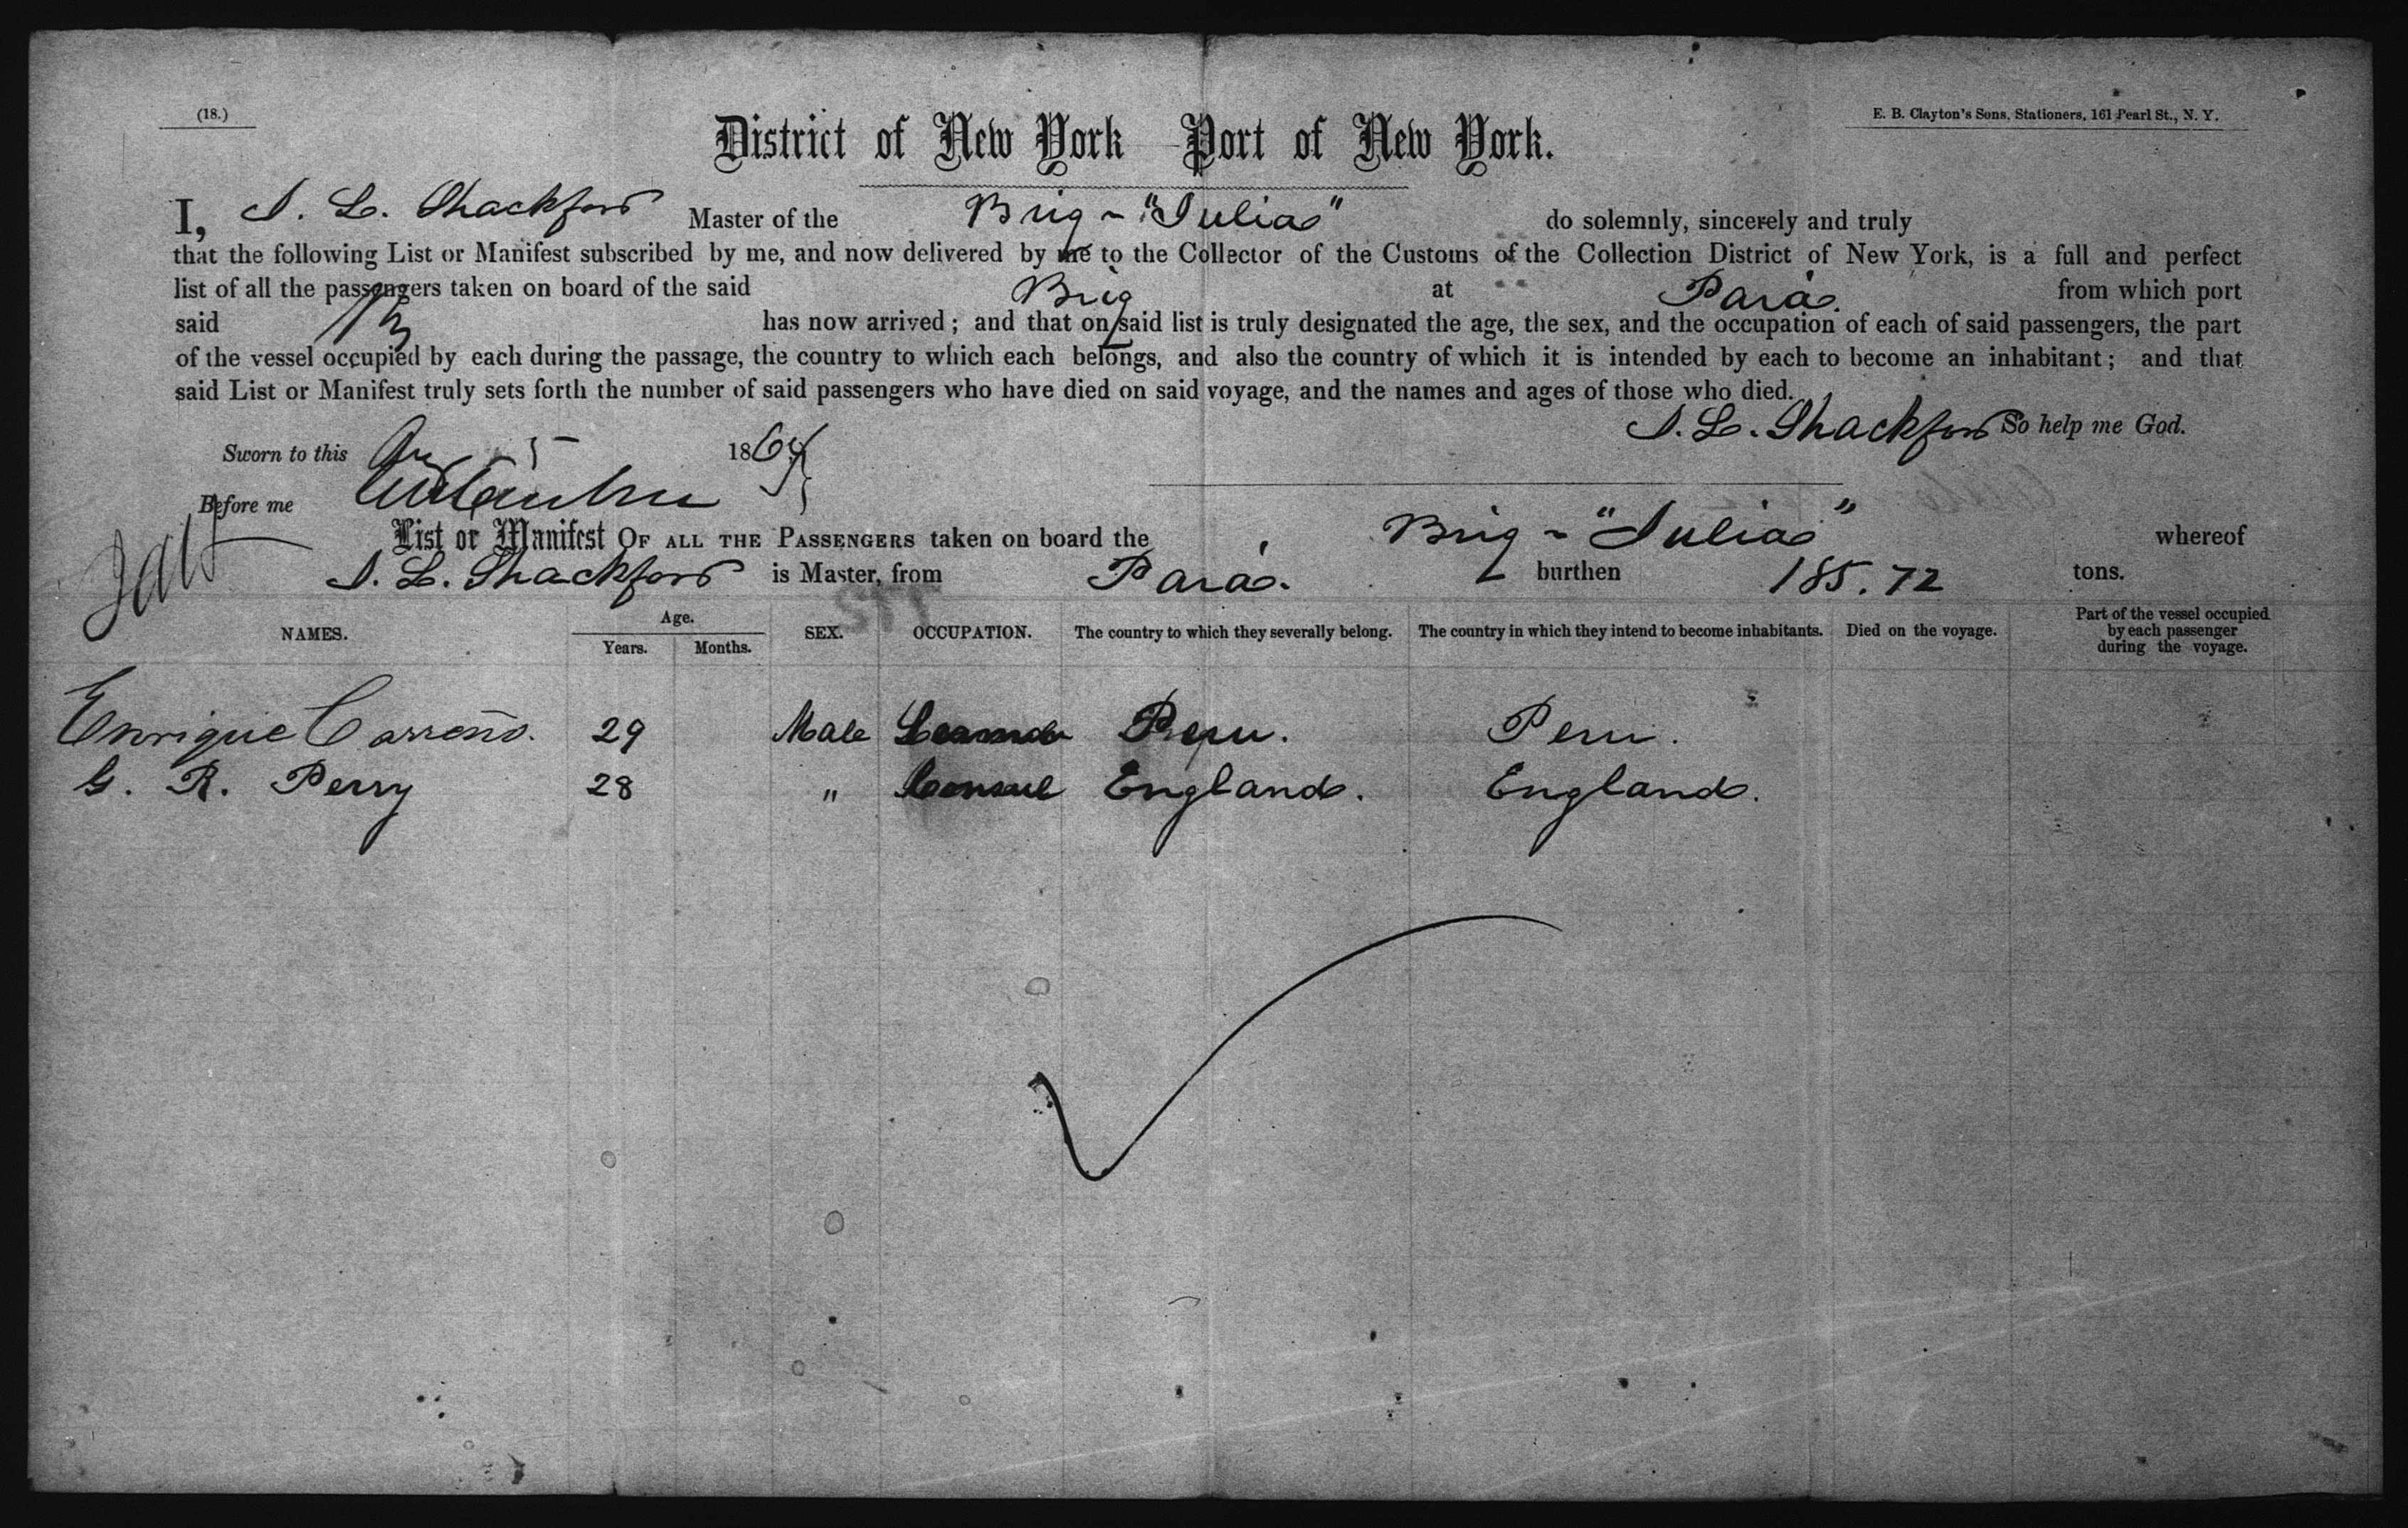 (18.)
E. B. Clayton's Sons, Stationers, 161 Pearl St., N. Y.
District of New York Port of New York.
I, S. L. Shackford Master of the Brig - "Julia" do solemnly, sincerely and truly
that the following List or Manifest subscribed by me, and now delivered by me to the Collector of the Customs of the Collection District of New York, is a full and perfect
list of all the passengers taken on board of the said Brig at Pará. from which port
said has now arrived; and that on said list is truly designated the age, the sex, and the occupation of each of said passengers, the part
of the vessel occupied by each during the passage, the country to which each belongs, and also the country of which it is intended by each to become an inhabitant; and that
said List or Manifest truly sets forth the number of said passengers who have died on said voyage, and the names and ages of those who died.
S. L. Shackford So help me God.
Sworn to this 5 186
Before me
List or Manifest OF ALL THE PASSENGERS taken on board the Brig - "Julia" whereof
S. L. Shackford is Master, from Pará. burthen 185.72 tons.
NAMES. Age. Years. Months. SEX. OCCUPATION. The country to which they severally belong. The country in which they intend to become inhabitants. Died on the voyage. Part of the vessel occupied by each passenger during the voyage.
Enrique Carreño. 29 Male Peru. Peru.
G. R. Perry 28 " Consul England. England.